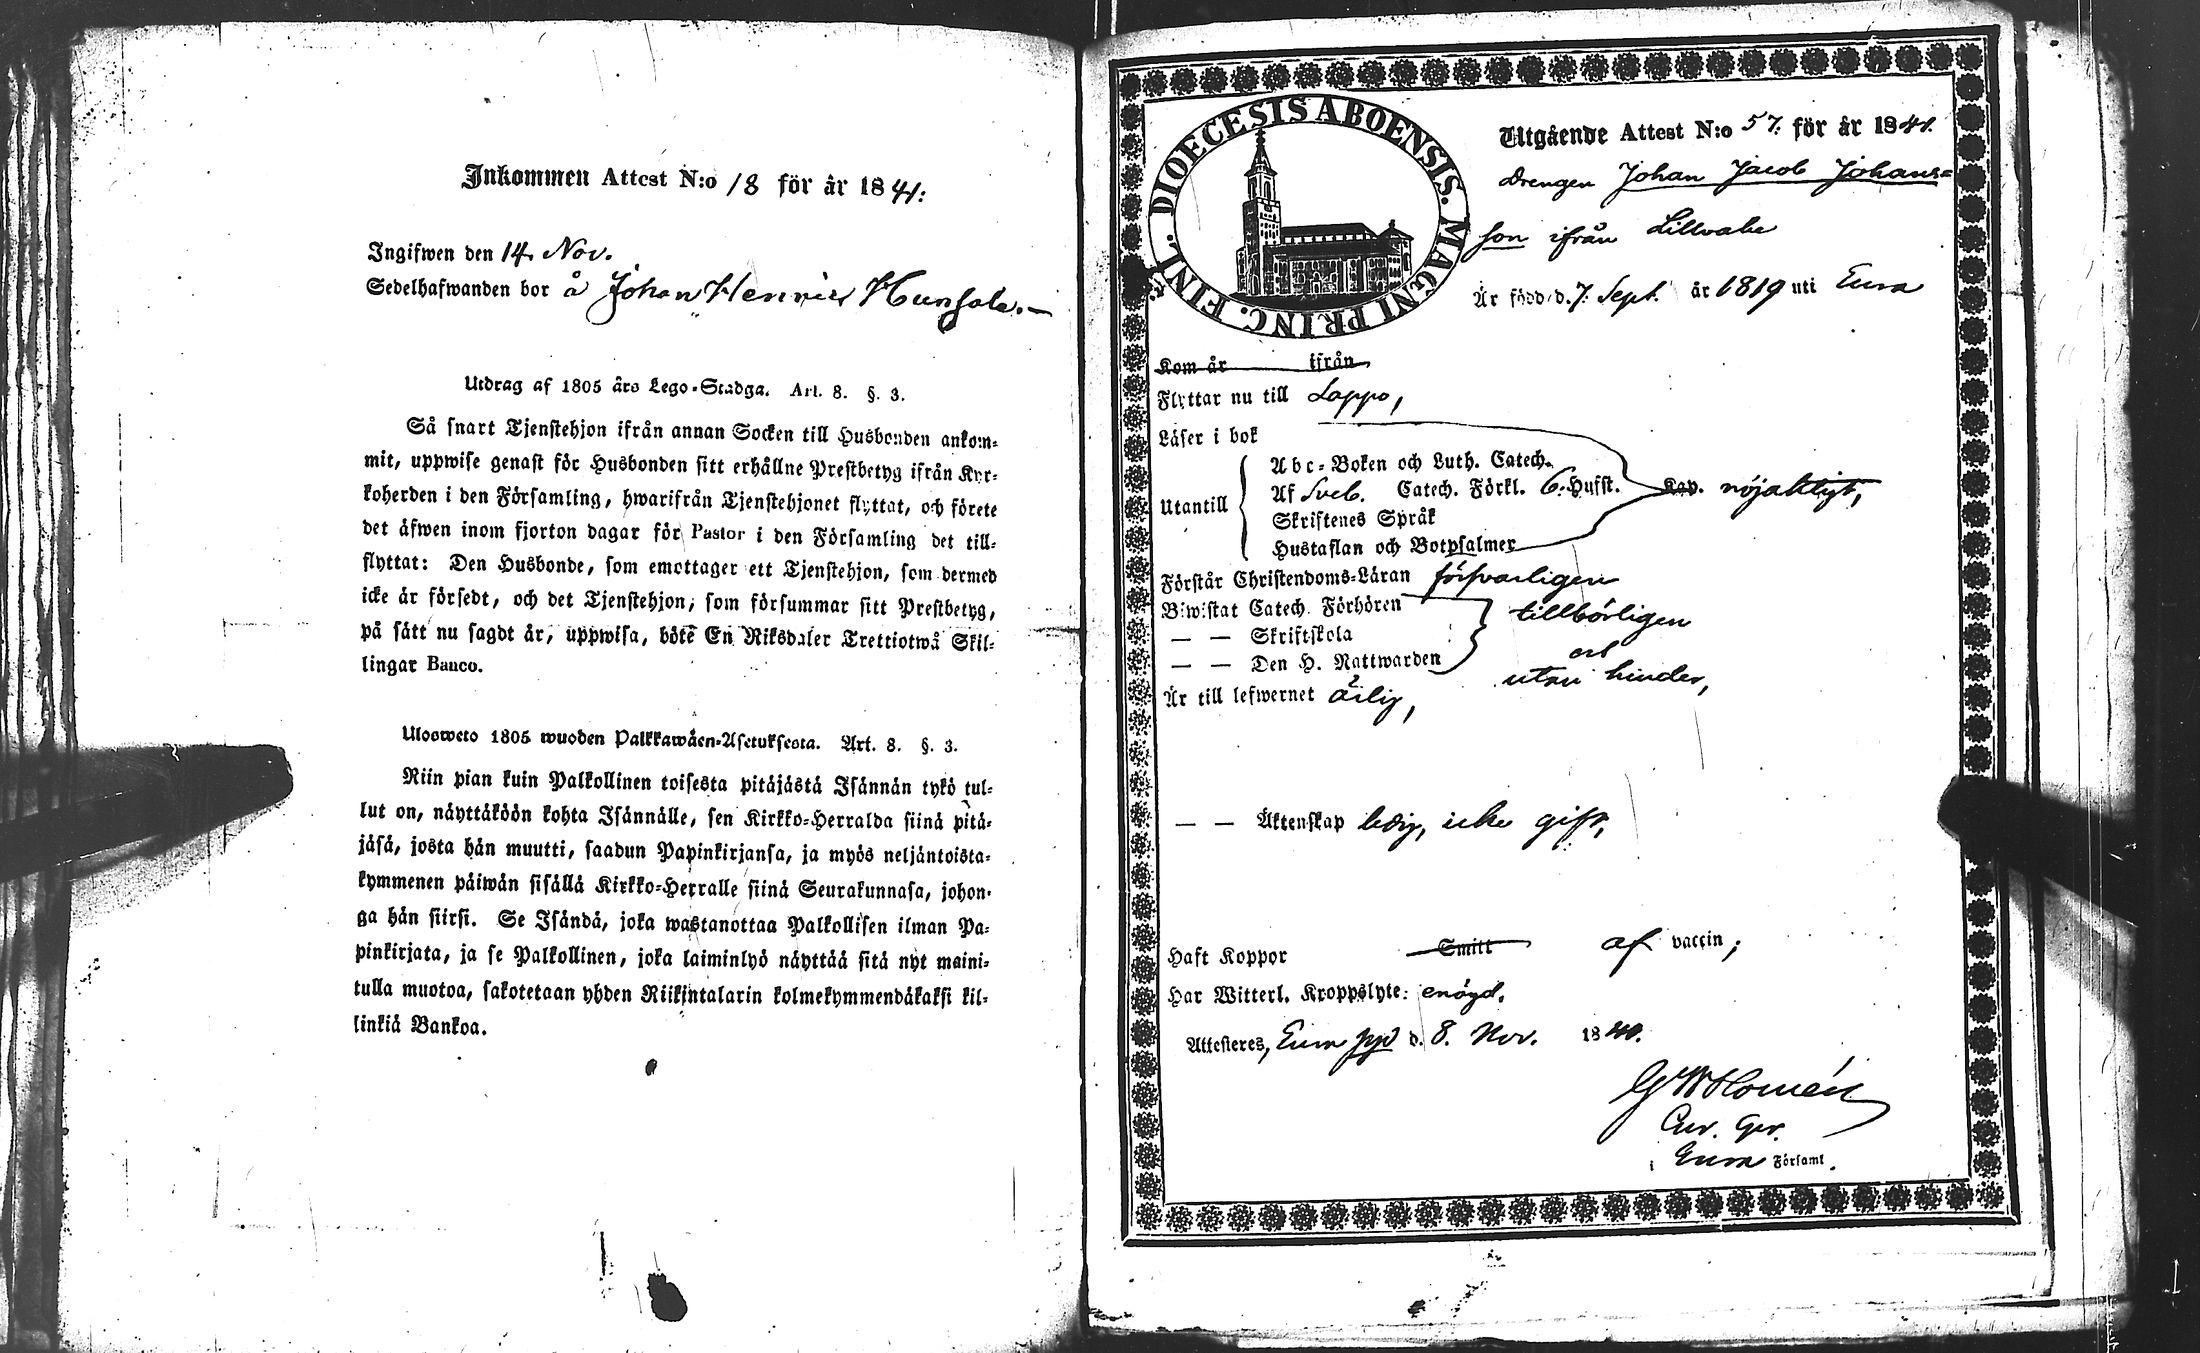 Inkommen Attest N:o 18 för år 1841:
Ingifwen den 14. Nov.
Sedelhafwanden bor å Johan Henric
Utdrag af 1805 års Lego-Stadga. Art. 8. §. 3.
Så snart Tjenstehjon ifrån annan Socken till Husbonden ankom=
mit, uppwise genast för Husbonden sitt erhållne Prestbetyg ifrån Kyr=
koherden i den Församling, hwarifrån Tjenstehjonet flyttat, och förete
det äfwen inom fjorton dagar för Pastor i den Församling det till=
flyttat: Den Husbonde, som emottager ett Tjenstehjon, som dermed
icke är försedt, och det Tjenstehjon, som försummar sitt Prestbetyg,
på sätt nu sagdt är, uppwisa, böte En Riksdaler Trettiotwå Skil=
lingar Banco.
Ulosweto 1805 wuoden Palkkawäen-Asetuksesta. Art. 8. §. 3.
Niin pian kuin Palkollinen toisesta pitäjästä Isännän tykö tul=
lut on, näyttäköön kohta Isännälle, sen Kirkko=Herralda siinä pitä=
jäsä, josta hän muutti, saadun Papinkirjansa, ja myös neljäntoista=
kymmenen päiwän sisällä Kirkko=Herralle siinä Seurakunnasa, johon=
ga hän siirsi. Se Isändä, joka wastanottaa Palkollisen ilman Pa=
pinkirjata, ja se Palkollinen, joka laiminlyö näyttää sitä nyt maini=
tulla muotoa, sakotetaan yhden Riikintalarin kolmekymmendäkaksi kil=
linkiä Bankoa.
DIOECESIS ABOENSIS. MAGNI PRINC. FINL.
Utgående Attest N:o 57. för år 1841.
Drengen Johan Jacob Johans=
son ifrån
Är född d. 7. Sept. år 1819 uti Eura
Kom år ifrån
Flyttar nu till Lappo,
Läser i bok
Abc=Boken och Luth. Catech.
Utantill Af Sveb. Catech. Förkl. 6. Husst. Kap. nöjaktigt,
Skriftenes Språk
Hustaflan och Botpsalmer
Förstår Christendoms=Läran försvarligen
Biwistat Catech. Förhören tillbörligen
— — Skriftskola
— — Den H. Nattwarden och
utan hinder,
Är till lefwernet ärlig,
— — Äktenskap ledig, icke gift,
Haft Koppor Smitt af vaccin;
Har Witterl. Kroppslyte:
Attesteres, Eura d. 8. Nov. 1840.
G W Homén
i Eura Församl.